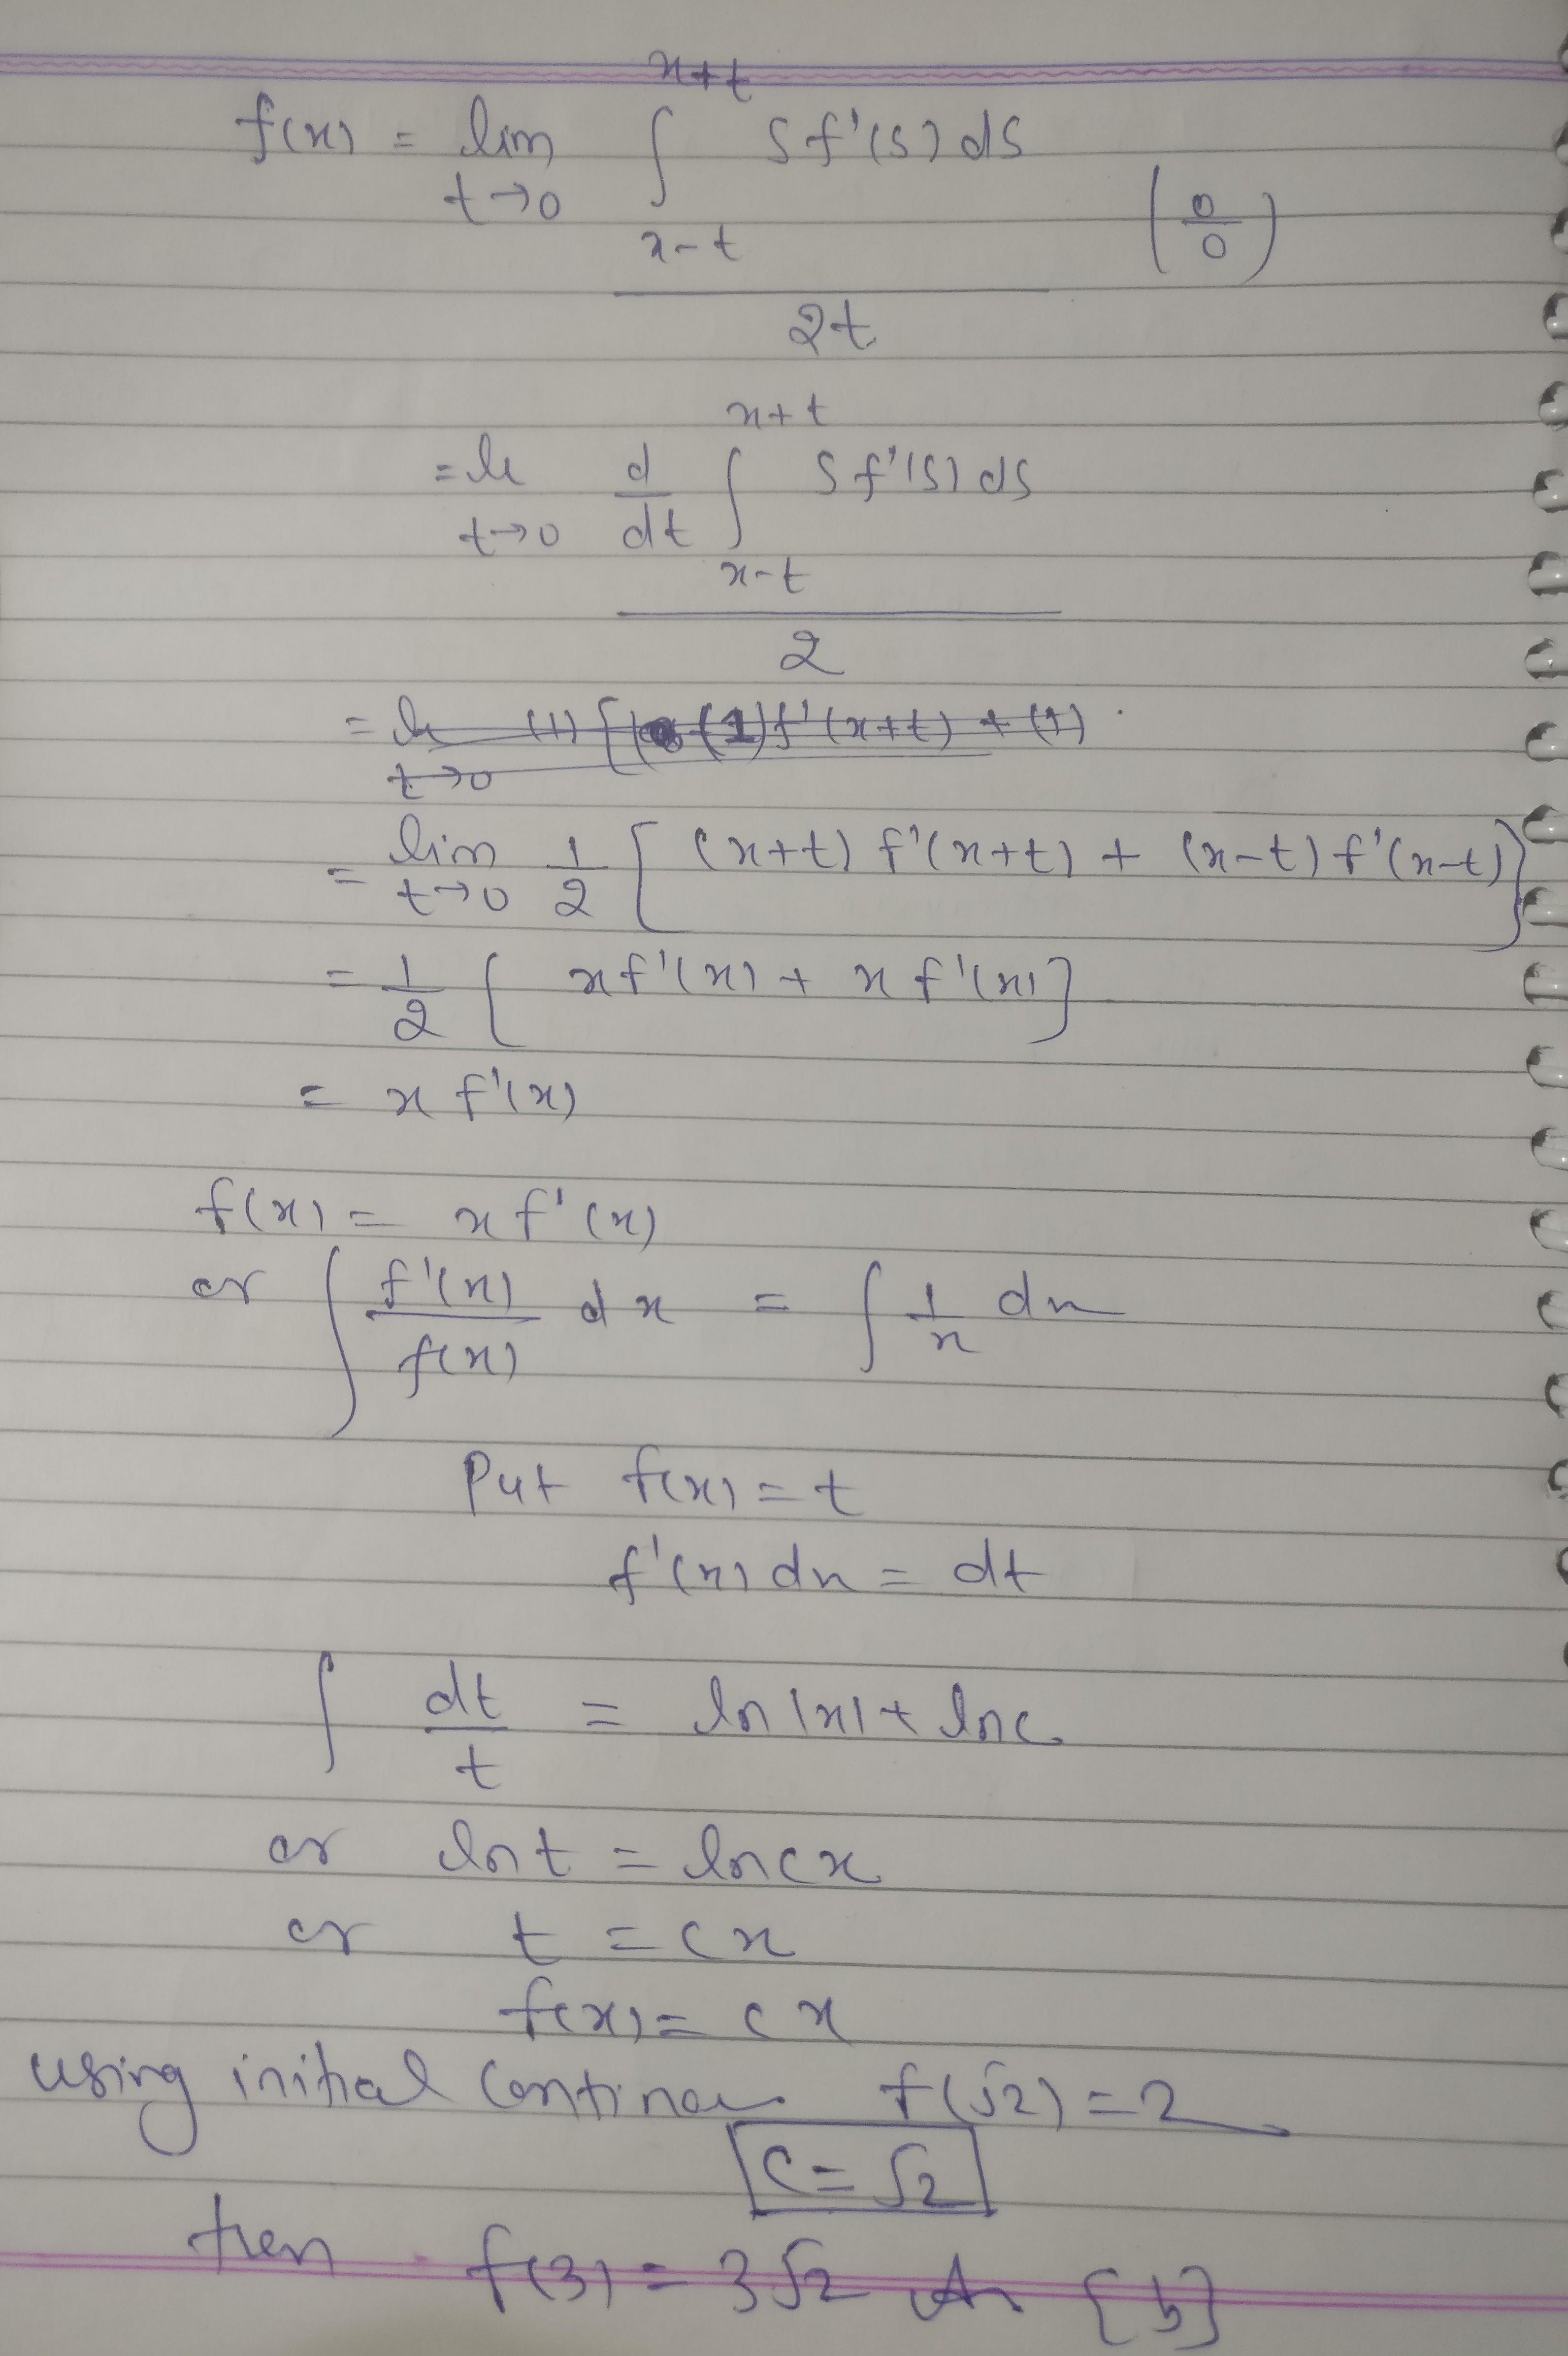 f(x) = lim t→0 ∫ x-t x+t s f'(s) ds / 2t (0/0)
= lt t→0 d/dt ∫ x-t x+t s f'(s) ds / 2
= lim t→0 1/2 [ (x+t) f'(x+t) + (x-t) f'(x-t) ]
= 1/2 [ x f'(x) + x f'(x) ]
= x f'(x)
f(x) = x f'(x)
or ∫ f'(x)/f(x) dx = ∫ 1/x dx
Put f(x) = t
f'(x) dx = dt
∫ dt/t = ln |x| + ln c
or ln t = ln cx
or t = cx
f(x) = cx
using initial f(√2) = 2
C = √2
then f(3) = 3√2 An {b}